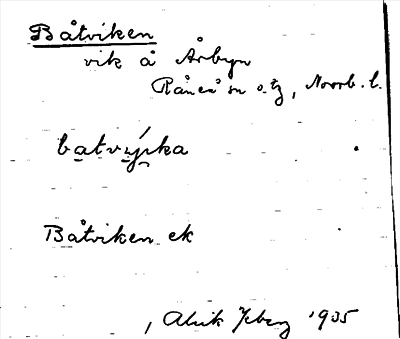 Båtviken
vik å Årbyn
Råneå sn o. tg, Norrb. l.
batvika
Båtviken ek
Alrik 1935